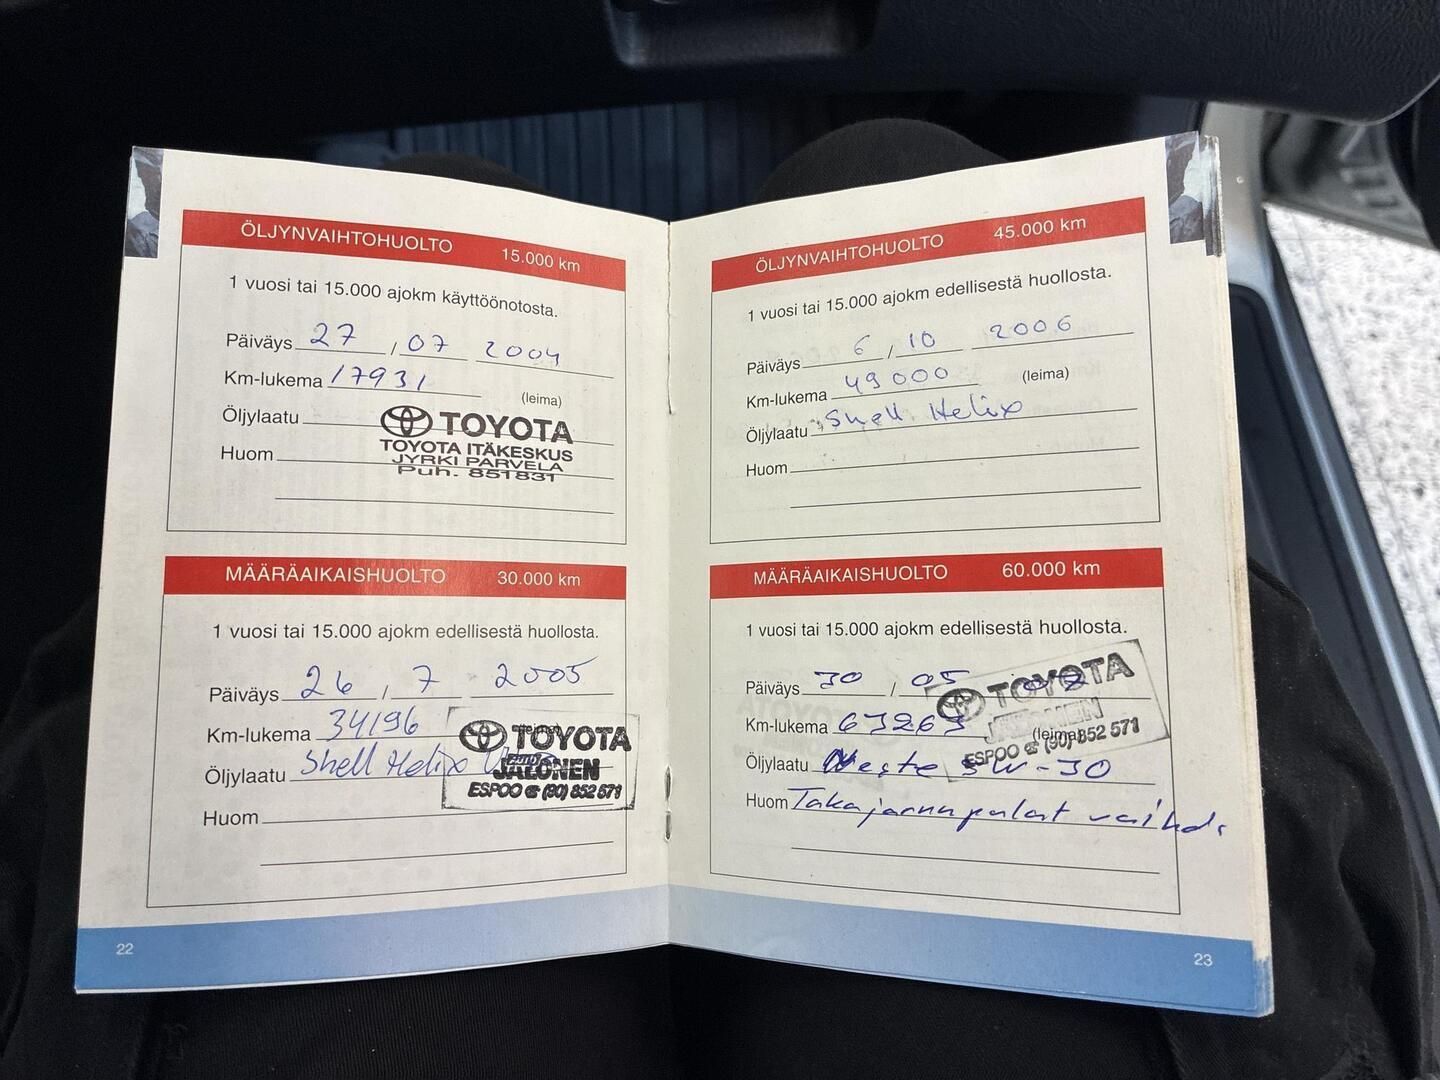 ÖLJYNVAIHTOHUOLTO 15.000 km
1 vuosi tai 15.000 ajokm käyttöönotosta.
Päiväys 27 / 07 2004
Km-lukema 17931
(leima)
Öljylaatu
TOYOTA
TOYOTA ITÄKESKUS
JYRKI PARVELA
Puh. 851831
Huom
MÄÄRÄAIKAISHUOLTO 30.000 km
1 vuosi tai 15.000 ajokm edellisestä huollosta.
Päiväys 26 / 7 2005
Km-lukema 34196
Öljylaatu Shell Helix
TOYOTA
JALONEN
ESPOO ☎ (90) 852 571
Huom
22
ÖLJYNVAIHTOHUOLTO 45.000 km
1 vuosi tai 15.000 ajokm edellisestä huollosta.
Päiväys 6 / 10 2006
Km-lukema 49000 (leima)
Öljylaatu Shell Helix
Huom
MÄÄRÄAIKAISHUOLTO 60.000 km
1 vuosi tai 15.000 ajokm edellisestä huollosta.
Päiväys 30 / 05
TOYOTA
JALONEN
ESPOO ☎ (90) 852 571
Km-lukema 63263 (leima)
Öljylaatu Neste 5W-30
Huom Takajarrupalat vaihd.
23